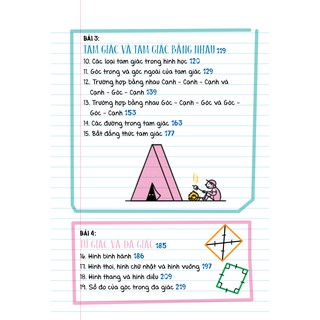 BÀI 3:
TAM GIÁC VÀ TAM GIÁC BẰNG NHAU 119
10. Các loại tam giác trong hình học 120
11. Góc trong và góc ngoài của tam giác 129
12. Trường hợp bằng nhau Cạnh - Cạnh - Cạnh và
Cạnh - Góc - Cạnh 139
13. Trường hợp bằng nhau Góc - Cạnh - Góc và Góc -
Góc - Cạnh 153
14. Các đường trong tam giác 163
15. Bất đẳng thức tam giác 177
BÀI 4:
TỨ GIÁC VÀ ĐA GIÁC 185
16. Hình bình hành 186
17. Hình thoi, hình chữ nhật và hình vuông 197
18. Hình thang và hình diều 209
19. Số đo của góc trong đa giác 219